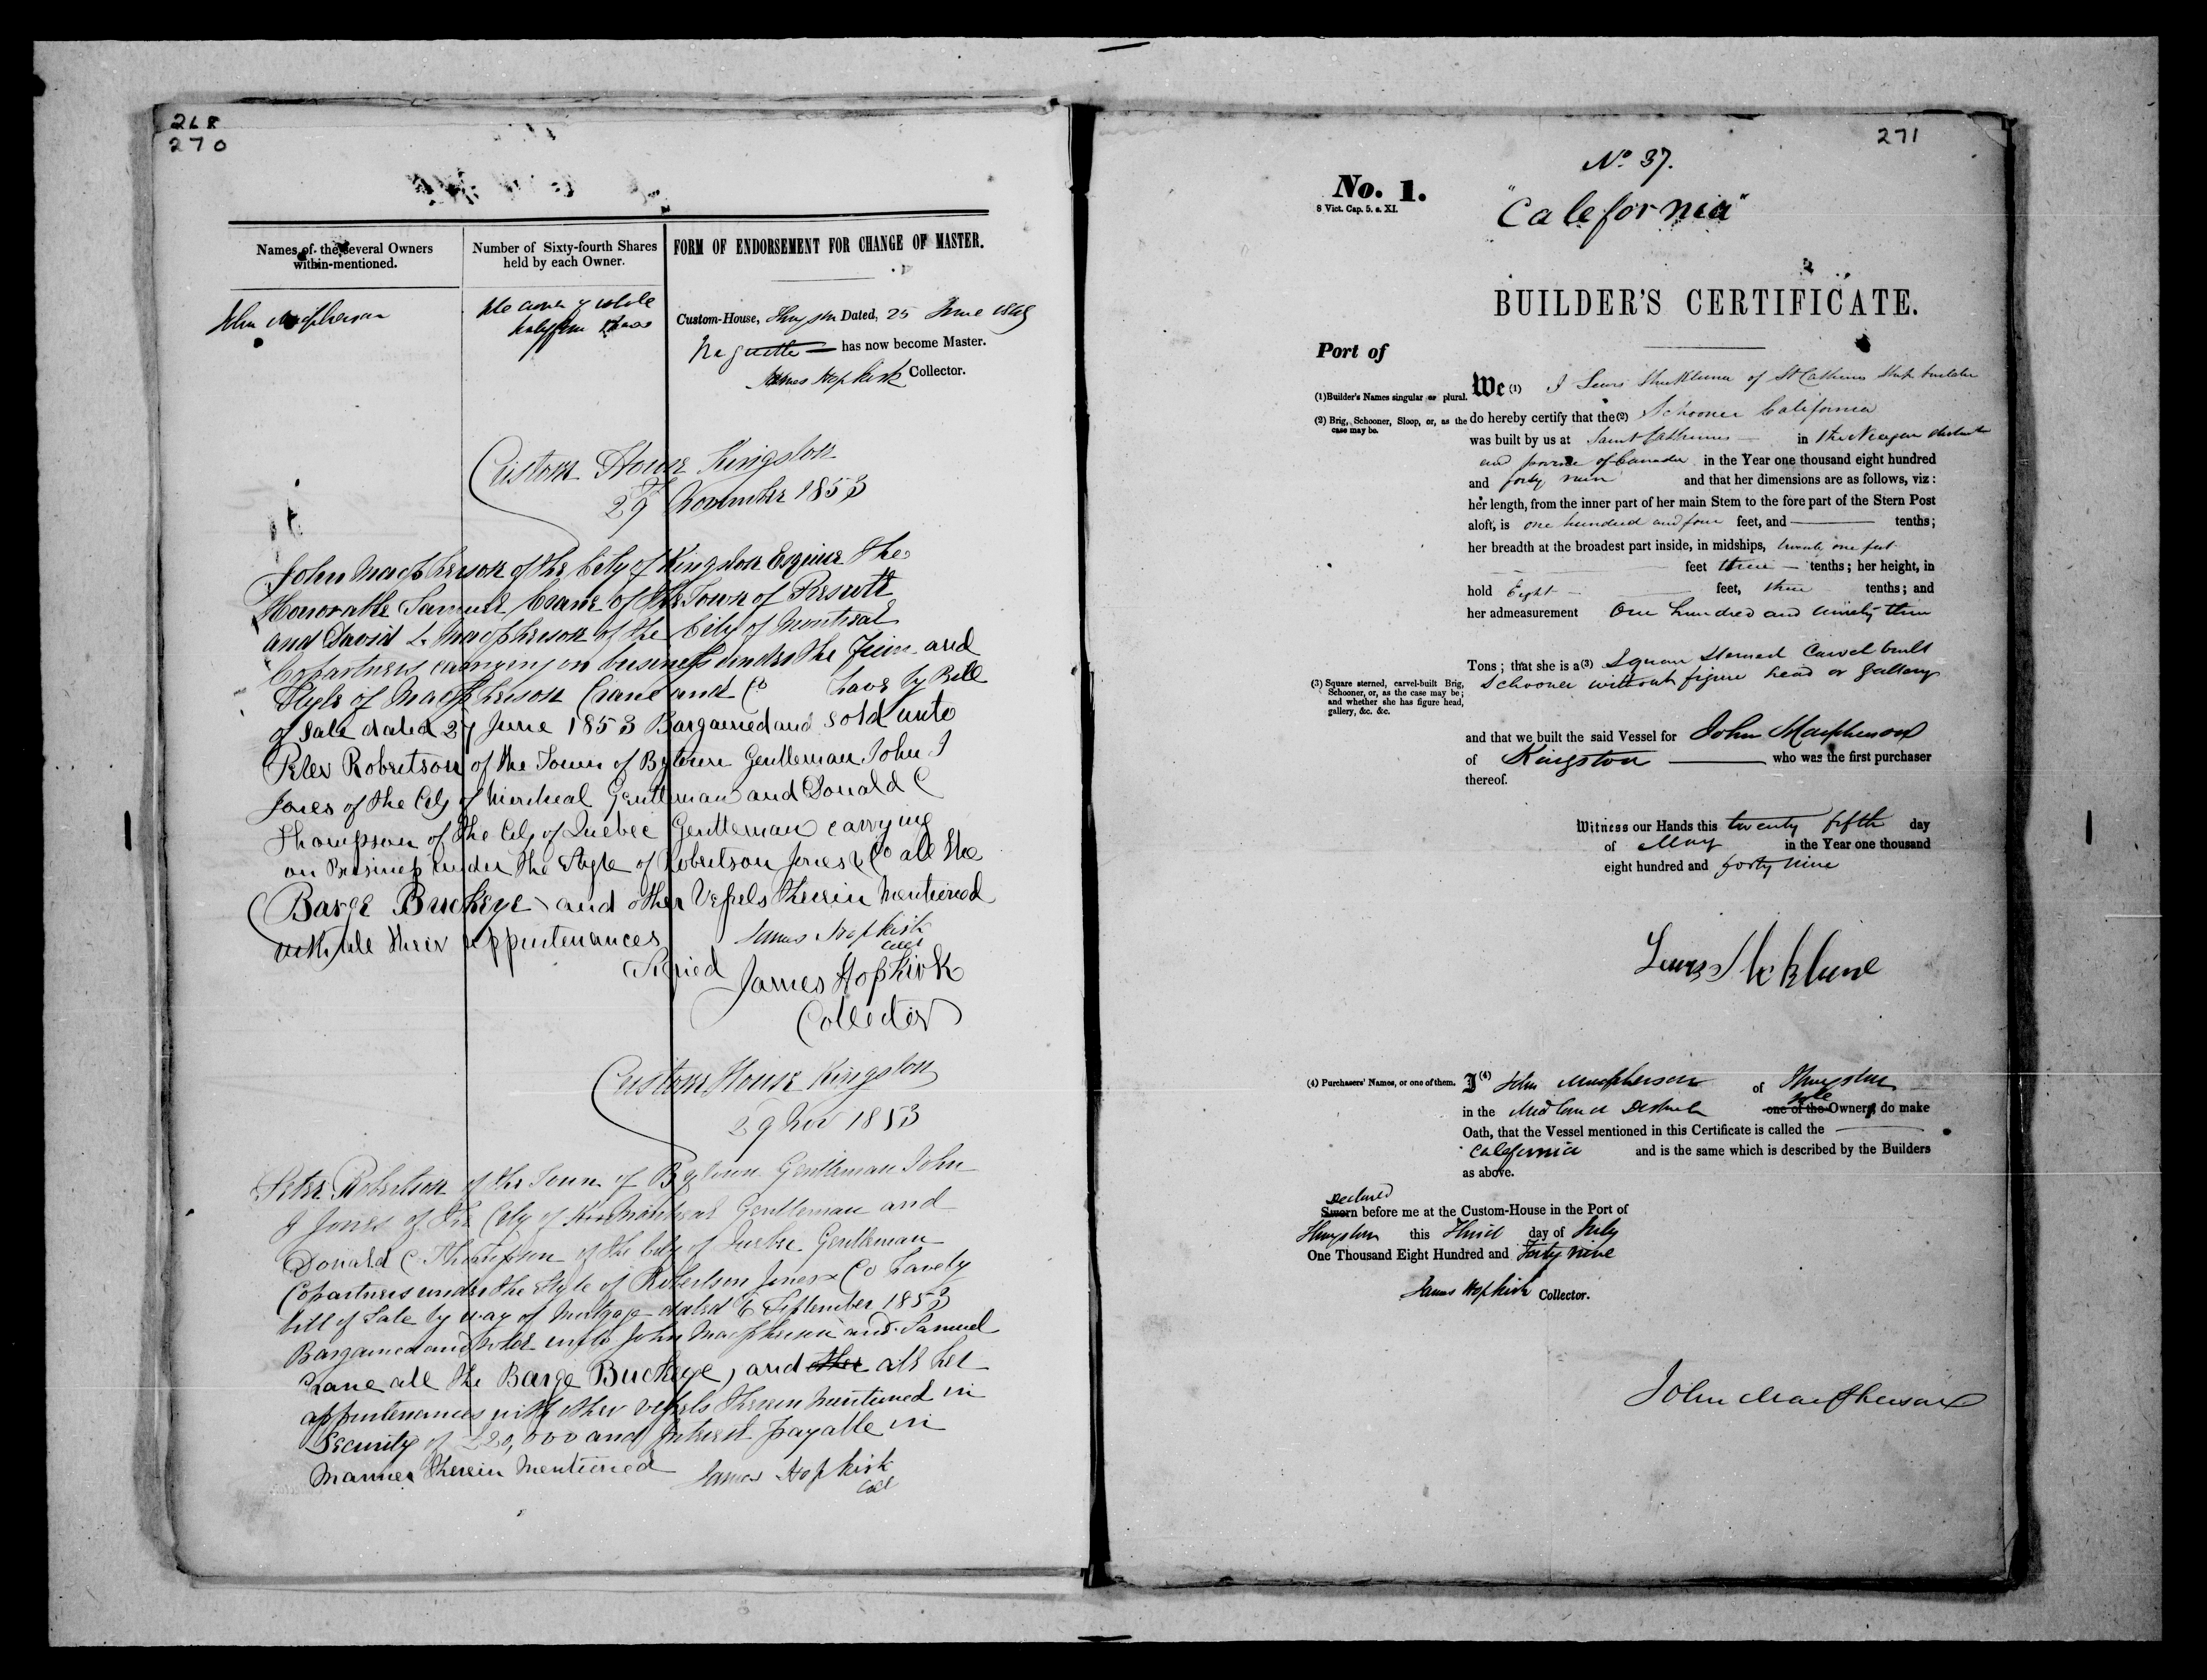 268
270
Names of the several Owners
within-mentioned.
Number of Sixty-fourth Shares
held by each Owner.
FORM OF ENDORSEMENT FOR CHANGE OF MASTER.
John Macpherson
Custom-House, Kingston Dated, 25 June 1849
has now become Master.
James Hopkirk Collector.
Custom House Kingston
29 November 1853
John Macpherson of the City of Kingston Esquire the
Honorable Samuel Crane of the Town of Prescott
and David L. Macpherson of the City of Montreal
Copartners carrying on business under the Firm and
Style of Macpherson Crane and Co have by Bill
of Sale dated 27 June 1853 Bargained and sold unto
Peter Robertson of the Town of Bytown Gentleman John J
Jones of the City of Montreal Gentleman and Donald C
Thompson of the City of Quebec Gentleman carrying
on Business under the Style of Robertson Jones & Co all the
Barge Buckeye and other Vessels therein mentioned
with all their appurtenances
James Hopkirk
Coll
Signed James Hopkirk
Collector
Custom House Kingston
29 Nov 1853
Peter Robertson of the Town of Bytown Gentleman John
J Jones of the City of Montreal Gentleman and
Donald C Thompson of the City of Quebec Gentleman
Copartners under the Style of Robertson Jones & Co have by
bill of Sale by way of Mortgage dated 6 September 1853
Bargained and sold unto John Macpherson and Samuel
Crane all the Barge Buckeye, and other all her
appurtenances with other vessels therein mentioned in
Security of £20,000 and Interest payable in
Manner therein mentioned
James Hopkirk
Coll
271
No 37.
No. 1.
8 Vict. Cap. 5. s. XI.
"California"
BUILDER'S CERTIFICATE.
Port of
(1)Builder's Names singular or plural.
We (1) I Lewis Shickluna of St Catherines Ship builder
(2) Brig, Schooner, Sloop, or, as the
case may be.
do hereby certify that the (2) Schooner California
was built by us at Saint Catherines in the Niagara district
and province of Canada in the Year one thousand eight hundred
and forty nine and that her dimensions are as follows, viz:
her length, from the inner part of her main Stem to the fore part of the Stern Post
aloft, is one hundred and four feet, and tenths;
her breadth at the broadest part inside, in midships, twenty one feet
feet three tenths; her height, in
hold Eight feet, three tenths; and
her admeasurement One hundred and ninety three
Tons; that she is a (3) Square Sterned Carvel built
Schooner without figure head or gallery
(3) Square sterned, carvel-built Brig,
Schooner, or, as the case may be;
and whether she has figure head,
gallery, &c. &c.
and that we built the said Vessel for John Macpherson
of Kingston who was the first purchaser
thereof.
Witness our Hands this twenty fifth day
of May in the Year one thousand
eight hundred and forty nine
Lewis Shickluna
(4) Purchasers' Names, or one of them.
I (4) John Macpherson of Kingston
in the Midland District sole one of the Owners, do make
Oath, that the Vessel mentioned in this Certificate is called the
California and is the same which is described by the Builders
as above.
Declared
Sworn before me at the Custom-House in the Port of
Kingston this Third day of July
One Thousand Eight Hundred and Forty nine
James Hopkirk Collector.
John Macpherson